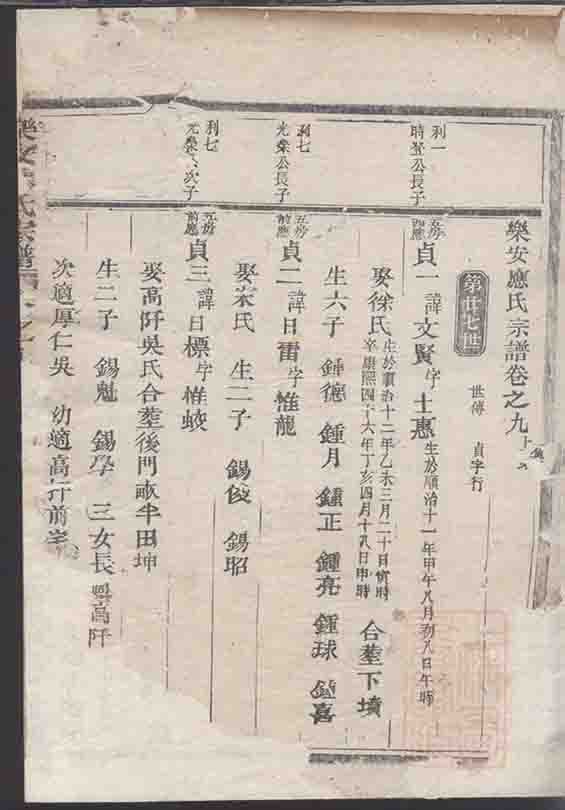 樂安應氏宗譜卷之九
第廿七世
世傳 貞字行
利一
時登公長子
貞一 諱文賢字士惠 生於順治十一年甲午八月初八日午時
娶徐氏 生於順治十二年乙未三月二十日寅時
卒康熙四十六年丁亥四月十八日申時
合塟下墳
生六子 鍾德 鍾月 鍾正 鍾亮 鍾球 鍾喜
利七
光榮公長子
五房
前應
貞二 諱曰雷字惟龍
娶宋氏 生二子 錫俊 錫昭
利七
光榮公次子
五房
前應
貞三 諱曰標字惟蛟
娶高阡吳氏合塟後門畝半田坤
生二子 錫魁 錫學 三女長適高阡
次適厚仁吳 幼適高阡前宅